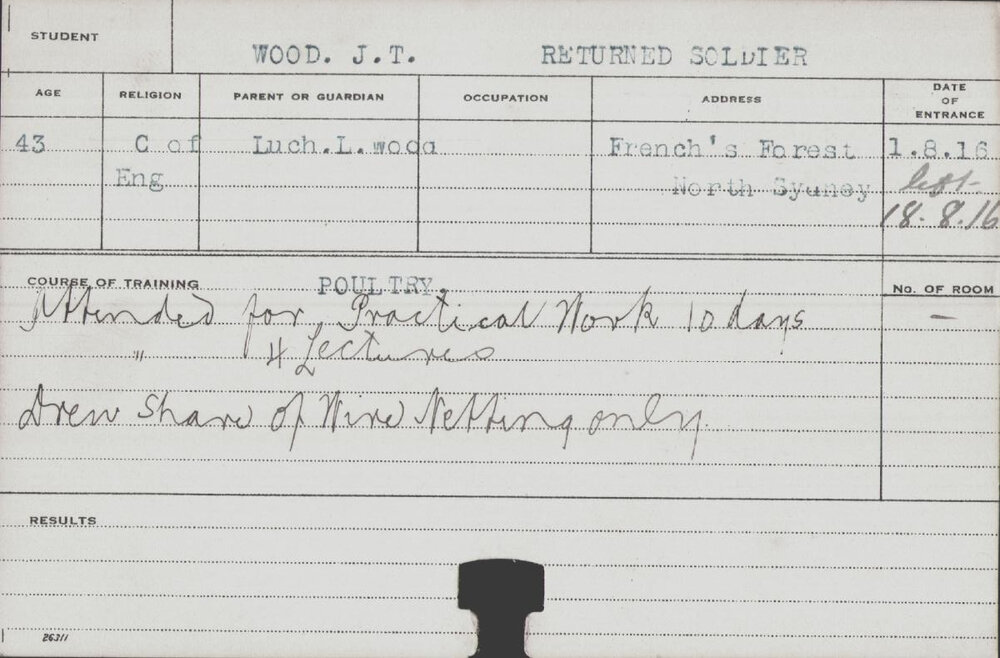 STUDENT
WOOD. J.T. RETURNED SOLDIER
AGE RELIGION PARENT OR GUARDIAN OCCUPATION ADDRESS DATE OF ENTRANCE
43 C of Luch.L.wood French's Forest 1.8.16
Eng North Sydney left
18.8.16
COURSE OF TRAINING POULTRY. No. OF ROOM
Attended for, Practical Work 10 days —
" 4 Lectures
Drew Share of Wire Netting only.
RESULTS
26311